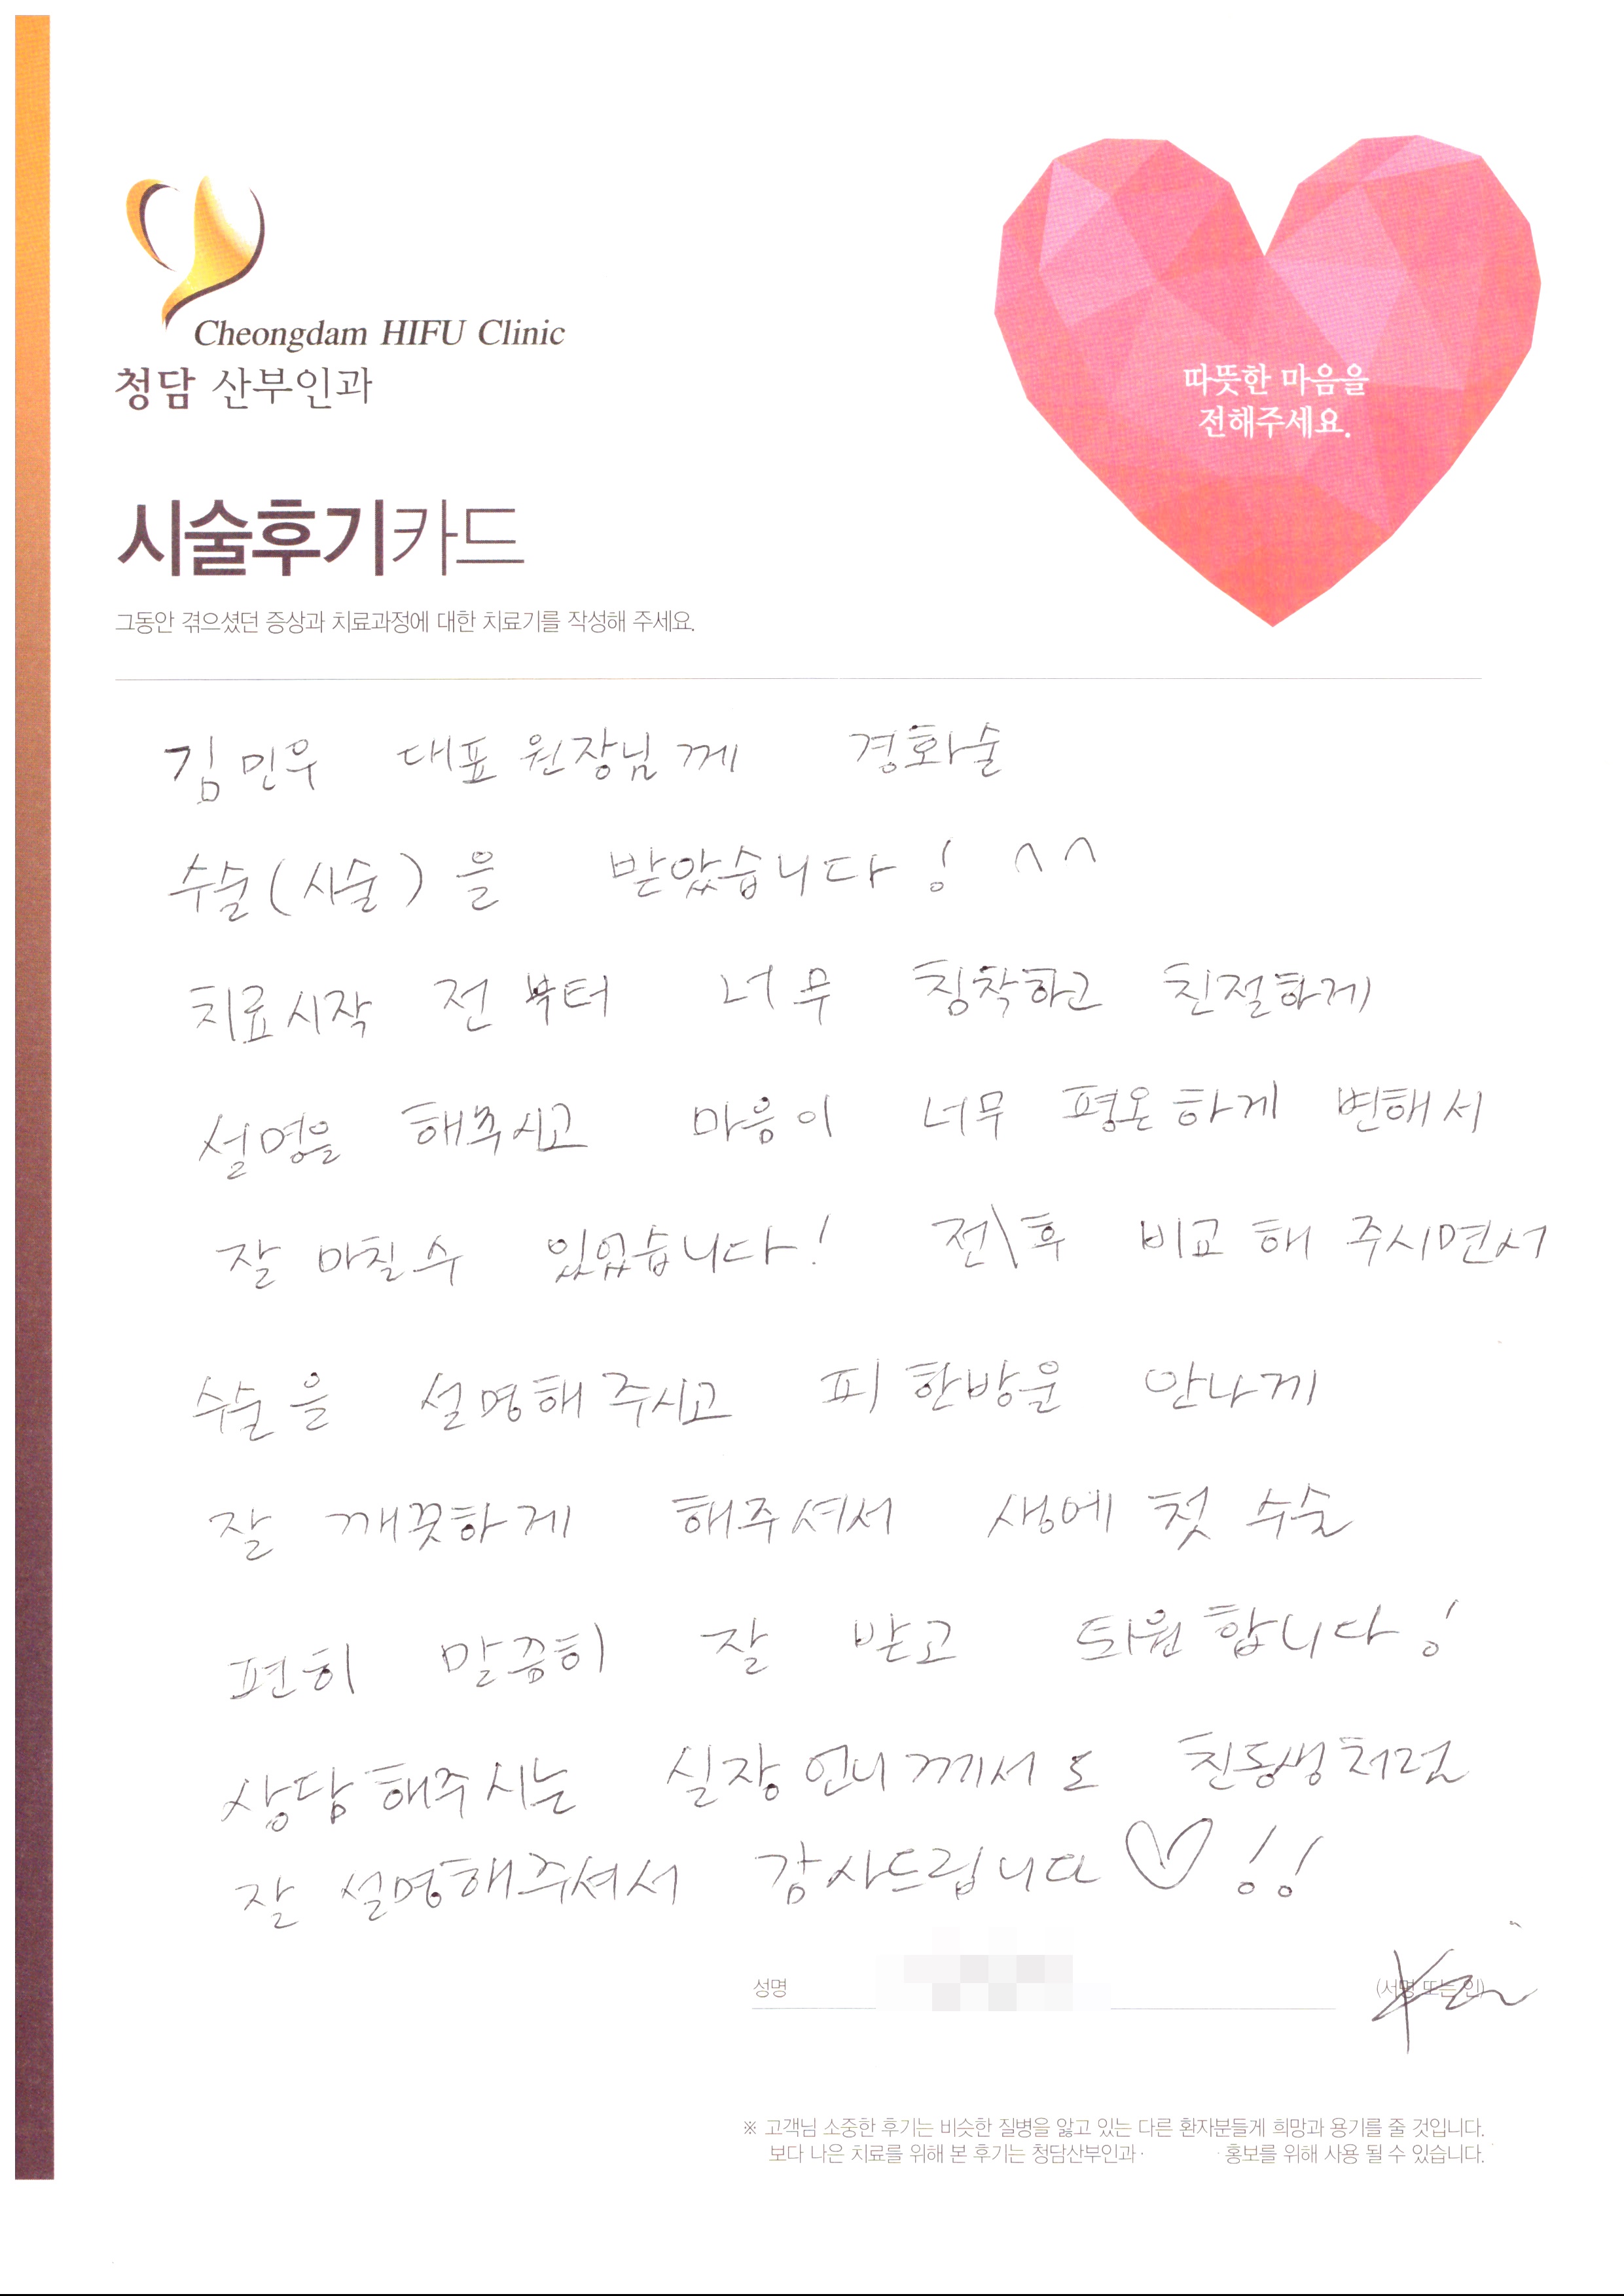 Cheongdam HIFU Clinic
청담 산부인과
따뜻한 마음을
전해주세요.
시술후기카드
그동안 겪으셨던 증상과 치료과정에 대한 치료기를 작성해 주세요.
김민우 대표원장님께 경화술
수술(시술)을 받았습니다! ^^
치료시작 전부터 너무 침착하고 친절하게
설명을 해주시고 마음이 너무 평온하게 변해서
잘 마칠수 있었습니다! 전\후 비교해 주시면서
수술을 설명해주시고 피 한방울 안나게
잘 깨끗하게 해주셔서 생에 첫 수술
편히 말끔히 잘 받고 퇴원합니다!
상담해주시는 실장언니께서도 친동생처럼
잘 설명해주셔서 감사드립니다♡!!
성명
(서명 또는 인)
※ 고객님 소중한 후기는 비슷한 질병을 앓고 있는 다른 환자분들게 희망과 용기를 줄 것입니다.
보다 나은 치료를 위해 본 후기는 청담산부인과· · 홍보를 위해 사용 될 수 있습니다.